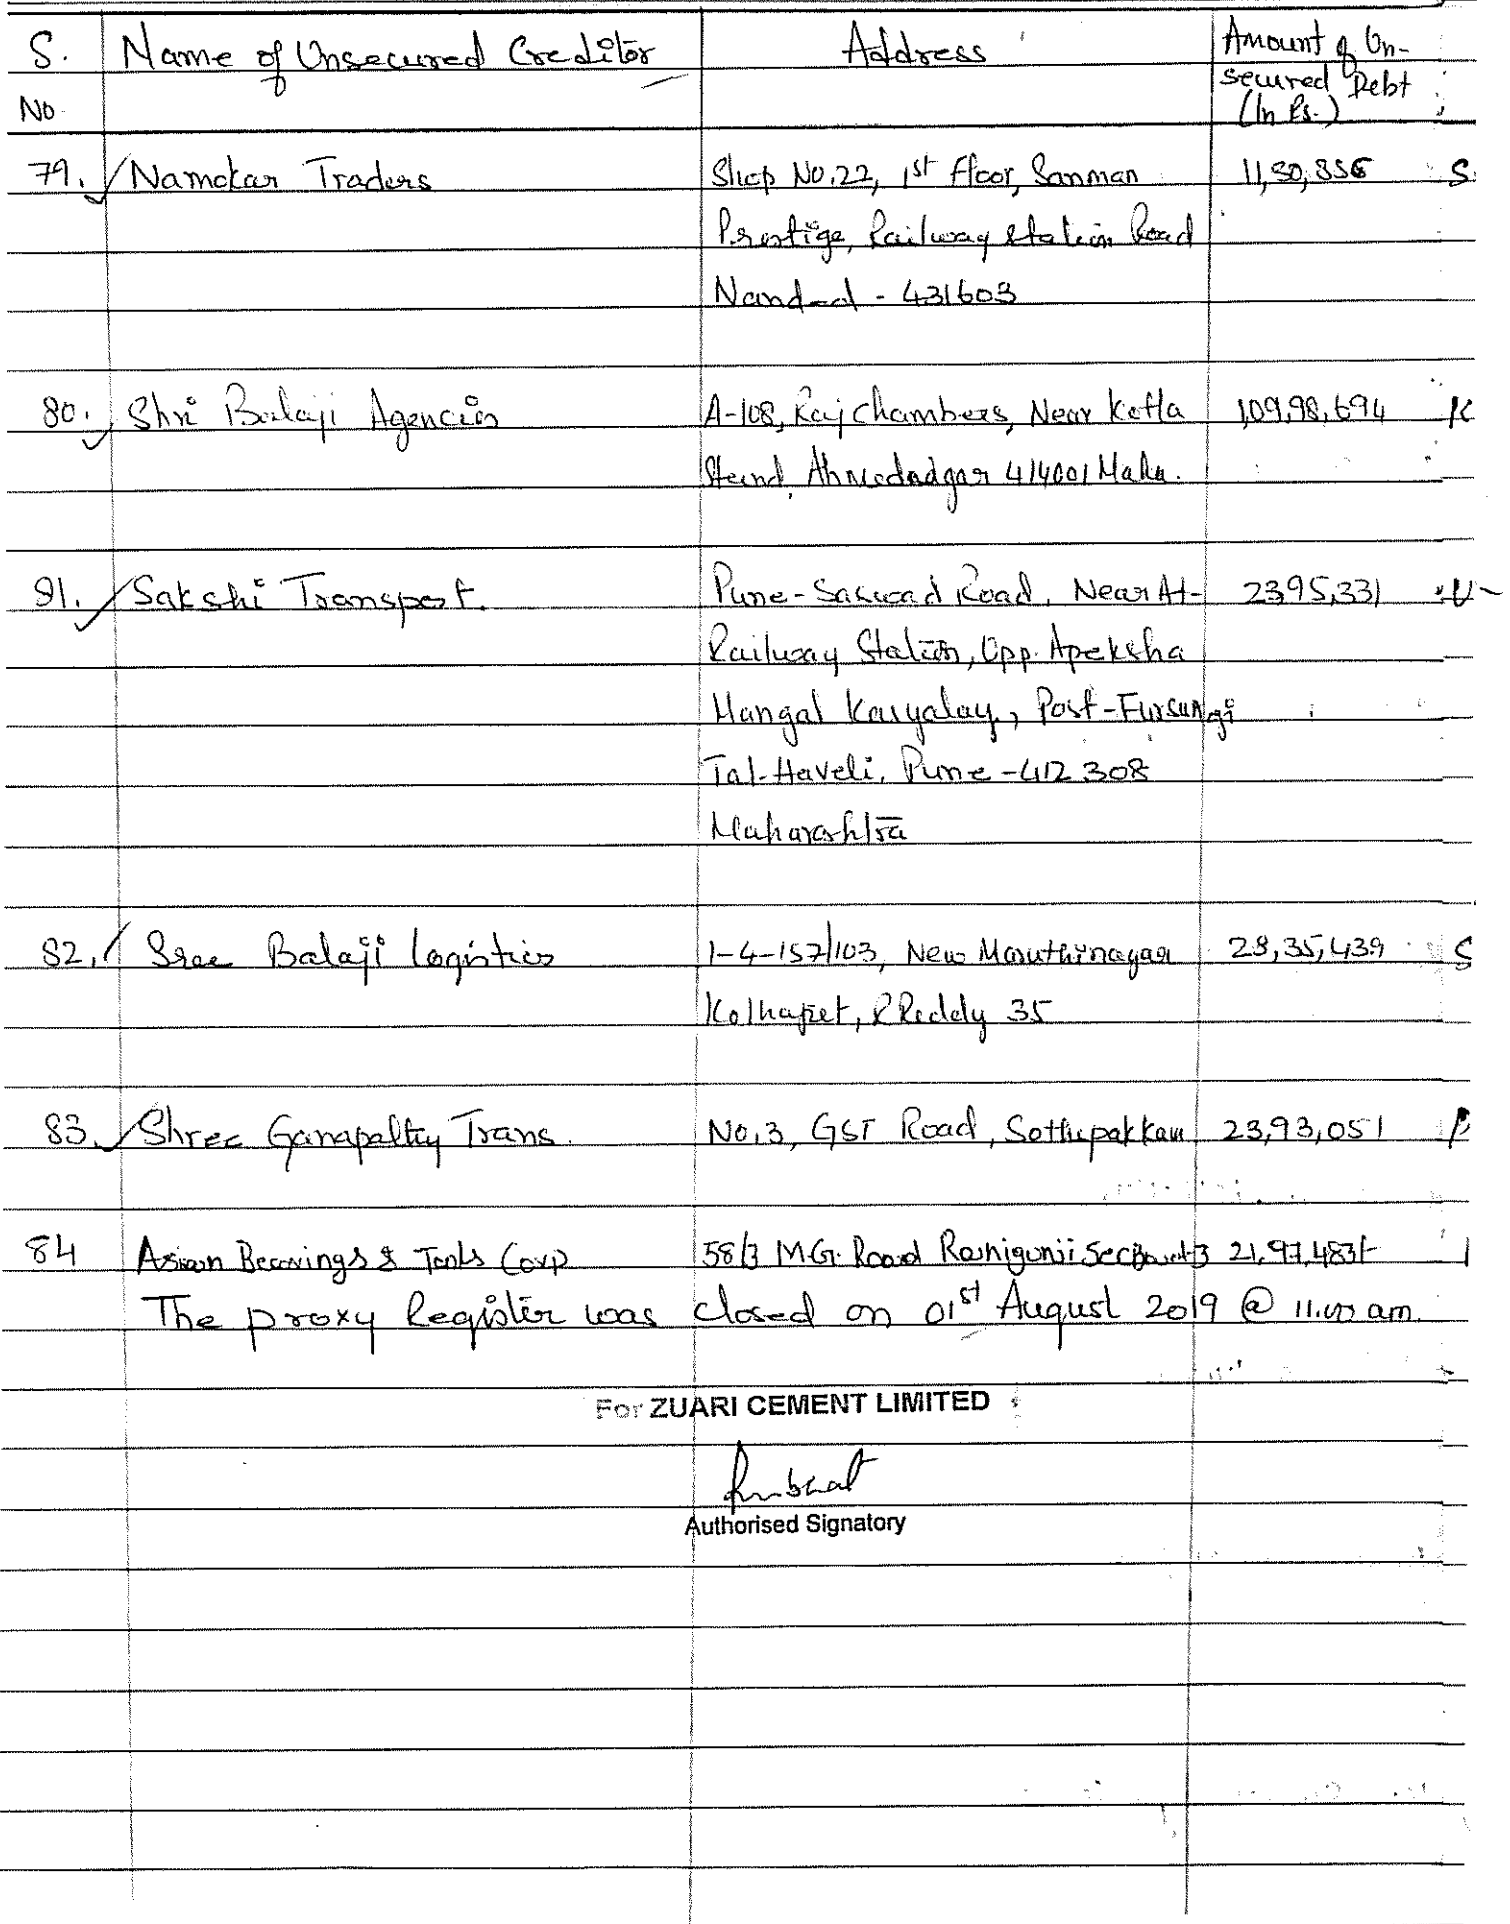 S. Name of Unsecured Creditor Address Amount of Un-
No. secured Debt
(In Rs.)
79. Namokar Traders Shop No.22, 1st Floor, Sanman 11,30,356 S
Prestige, Railway Station Road
Nanded - 431603
80. Shri Balaji Agencies A-108, Raj Chambers, Near Kotla 1,09,98,694 K
Stand, Ahmednagar 414001 Maha.
81. Sakshi Transport. Pune-Saswad Road, Near At- 2395,331
Railway Station, Opp. Apeksha
Mangal Karyalay, Post-Fursungi
Tal-Haveli, Pune-412 308
Maharashtra
82. Sree Balaji Logistics 1-4-157/103, New Maruthinagar 28,35,439 S
Kothapet, RReddy 35
83. Shree Ganapathy Trans. No.3, GST Road, Sothupakkam 23,93,051
84 Asian Bearings & Tools Corp 58/3 M.G. Road Ranigunj 21,97,483/-
The proxy Register was closed on 01st August 2019 @ 11.00 am.
For ZUARI CEMENT LIMITED
Authorised Signatory